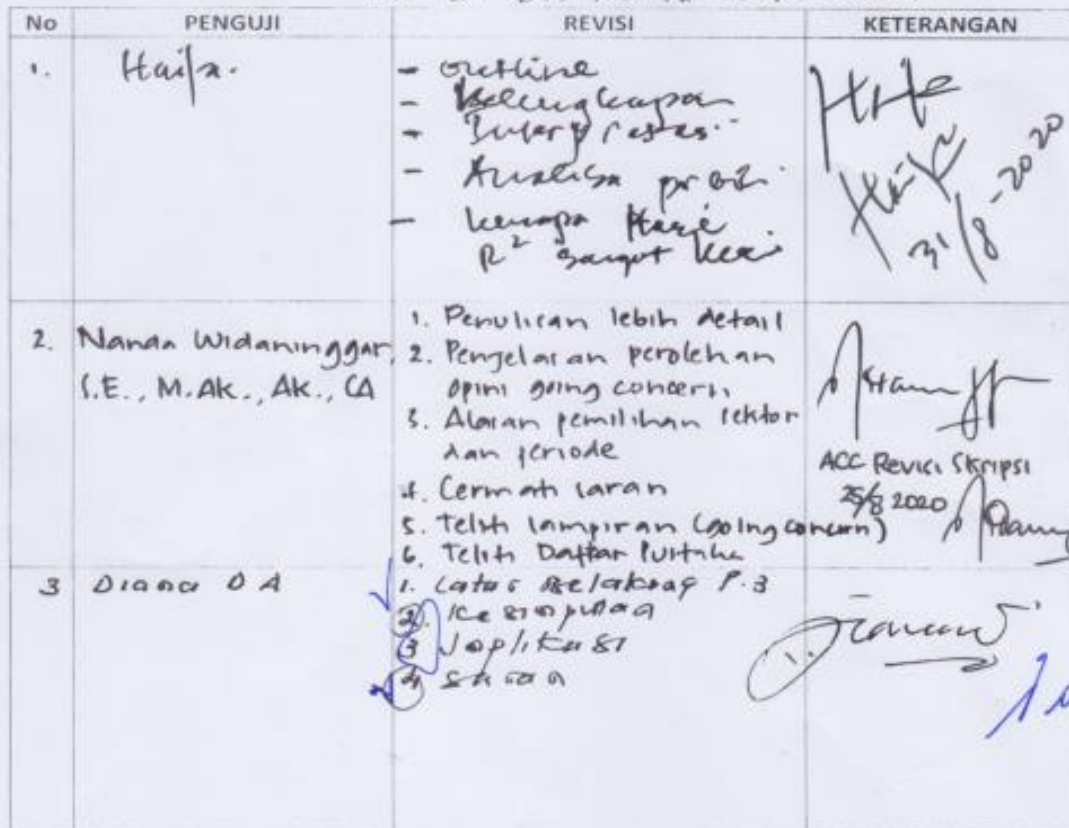 No PENGUJI REVISI KETERANGAN
1. Haifa.
- outline
- Kelengkapan
-
- Analisa
- kenapa Hasil
R² sangat
31/8-2020
2. Nanda Widaninggar,
S.E., M.Ak., Ak., CA
1. Penulisan lebih detail
2. Penjelasan perolehan
opini going concern
3. Alasan pemilihan sektor
dan periode
4. Cermati saran
5. Teliti lampiran (going concern)
6. Teliti Daftar Pustaka
ACC Revisi Skripsi
25/8 2020
3 Diana DA
1. Latar Belakang P.3
2. Kesimpulan
3 Implikasi
4 Saran